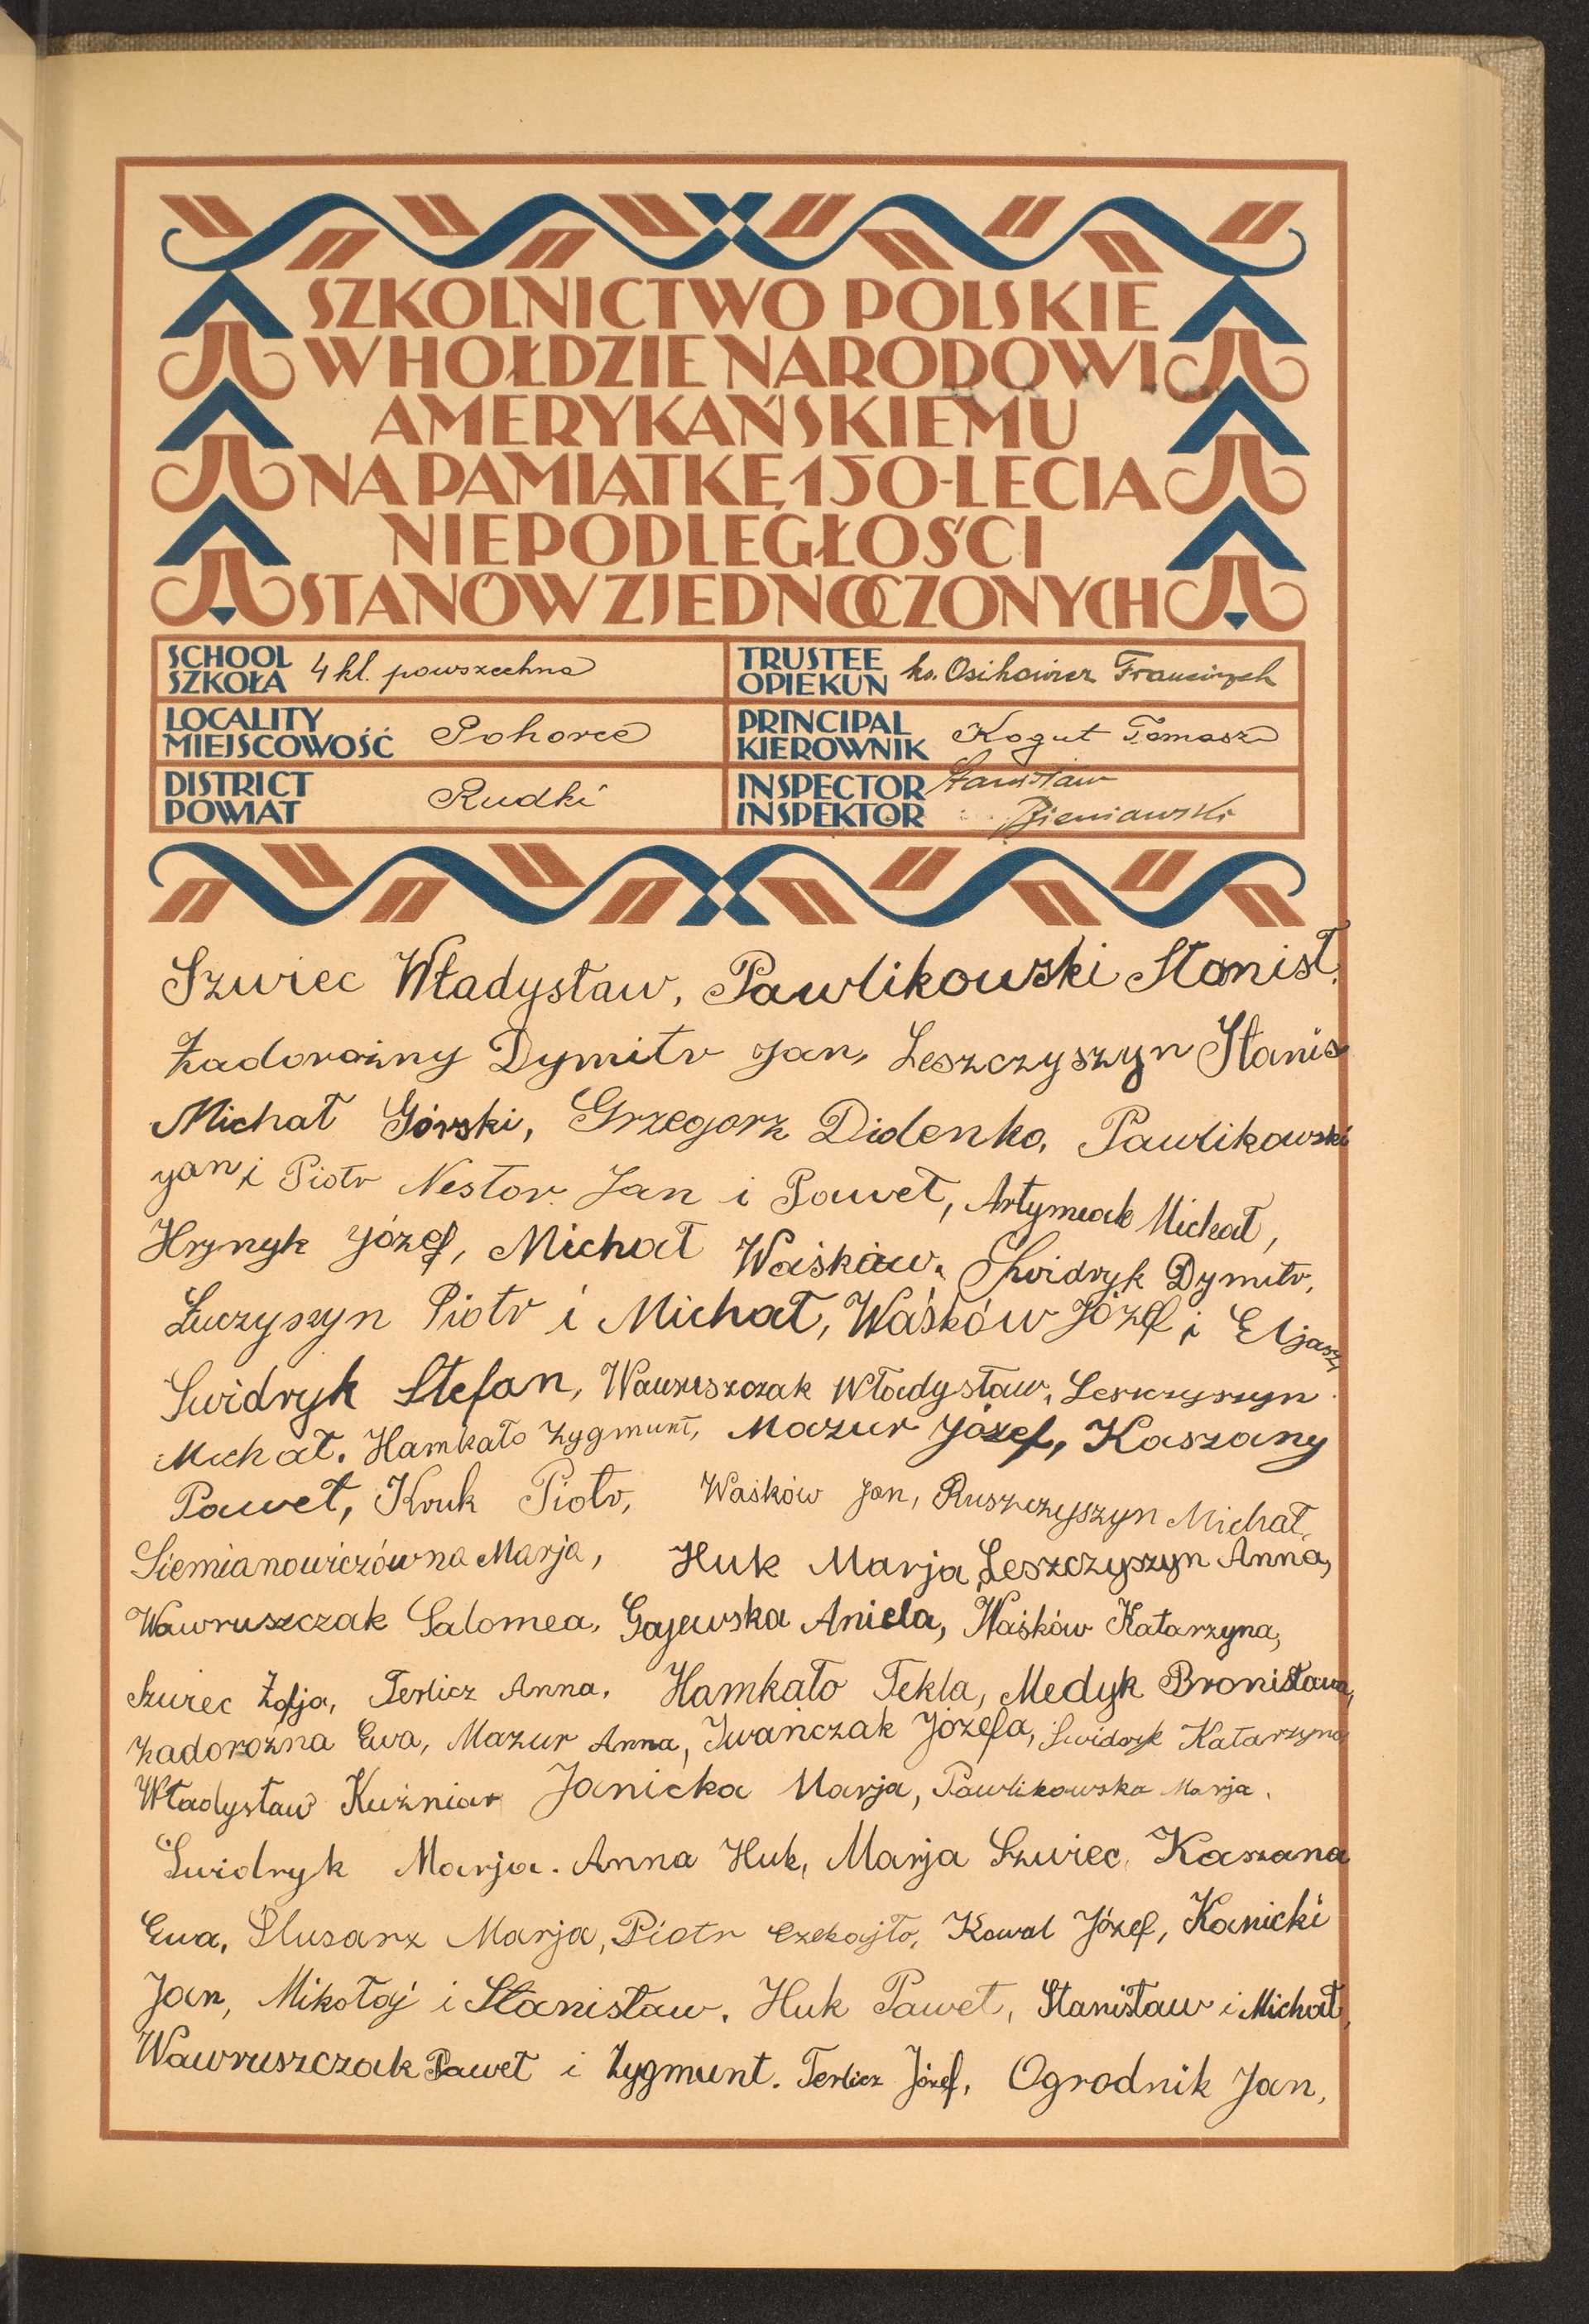 SZKOLNICTWO POLSKIE
W HOŁDZIE NARODOWI
AMERYKAŃSKIEMU
NA PAMIĄTKĘ 150-LECIA
NIEPODLEGŁOŚCI
STANÓW ZJEDNOCZONYCH
SCHOOL SZKOŁA 4 kl. powszechna
TRUSTEE OPIEKUN ks. Osikowicz Franciszek
LOCALITY MIEJSCOWOŚĆ Pohorce
PRINCIPAL KIEROWNIK Kogut Tomasz
DISTRICT POWIAT Rudki
INSPECTOR INSPEKTOR Stanisław Bieniawski
Szwiec Władysław, Pawlikowski Stanisł.
Zadorożny Dymitr Jan, Leszczyszyn Stanis
Michał Górski, Grzegorz Didenko, Pawlikowski
Jan i Piotr Nestor Jan i Paweł, Artymiak Michał,
Hrynyk Józef, Michał Waśków, Swidryk Dymitr,
Łuczyszyn Piotr i Michał, Waśków Józef i Eljasz,
Swidryk Stefan, Wawruszczak Władysław, Leszczyszyn
Michał. Hamkało Zygmunt, Mazur Józef, Kaszany
Paweł, Kruk Piotr, Waśków Jan, Ruszczyszyn Michał,
Siemianowiczówna Marja, Huk Marja, Leszczyszyn Anna,
Wawruszczak Salomea, Gajewska Aniela, Waśków Katarzyna,
Szwiec Zofja, Terlicz Anna, Hamkało Tekla, Medyk Bronisława,
Zadorożna Ewa, Mazur Anna, Iwańczak Józefa, Swidryk Katarzyna
Władysław Kuźniar Janicka Marja, Pawlikowska Marja.
Swidryk Marja. Anna Huk, Marja Szwiec, Kaszana
Ewa, Ślusarz Marja, Piotr Czekajło, Kowal Józef, Kanicki
Jan, Mikołaj i Stanisław, Huk Paweł, Stanisław i Michał,
Wawruszczak Paweł i Zygmunt. Terlicz Józef, Ogrodnik Jan,